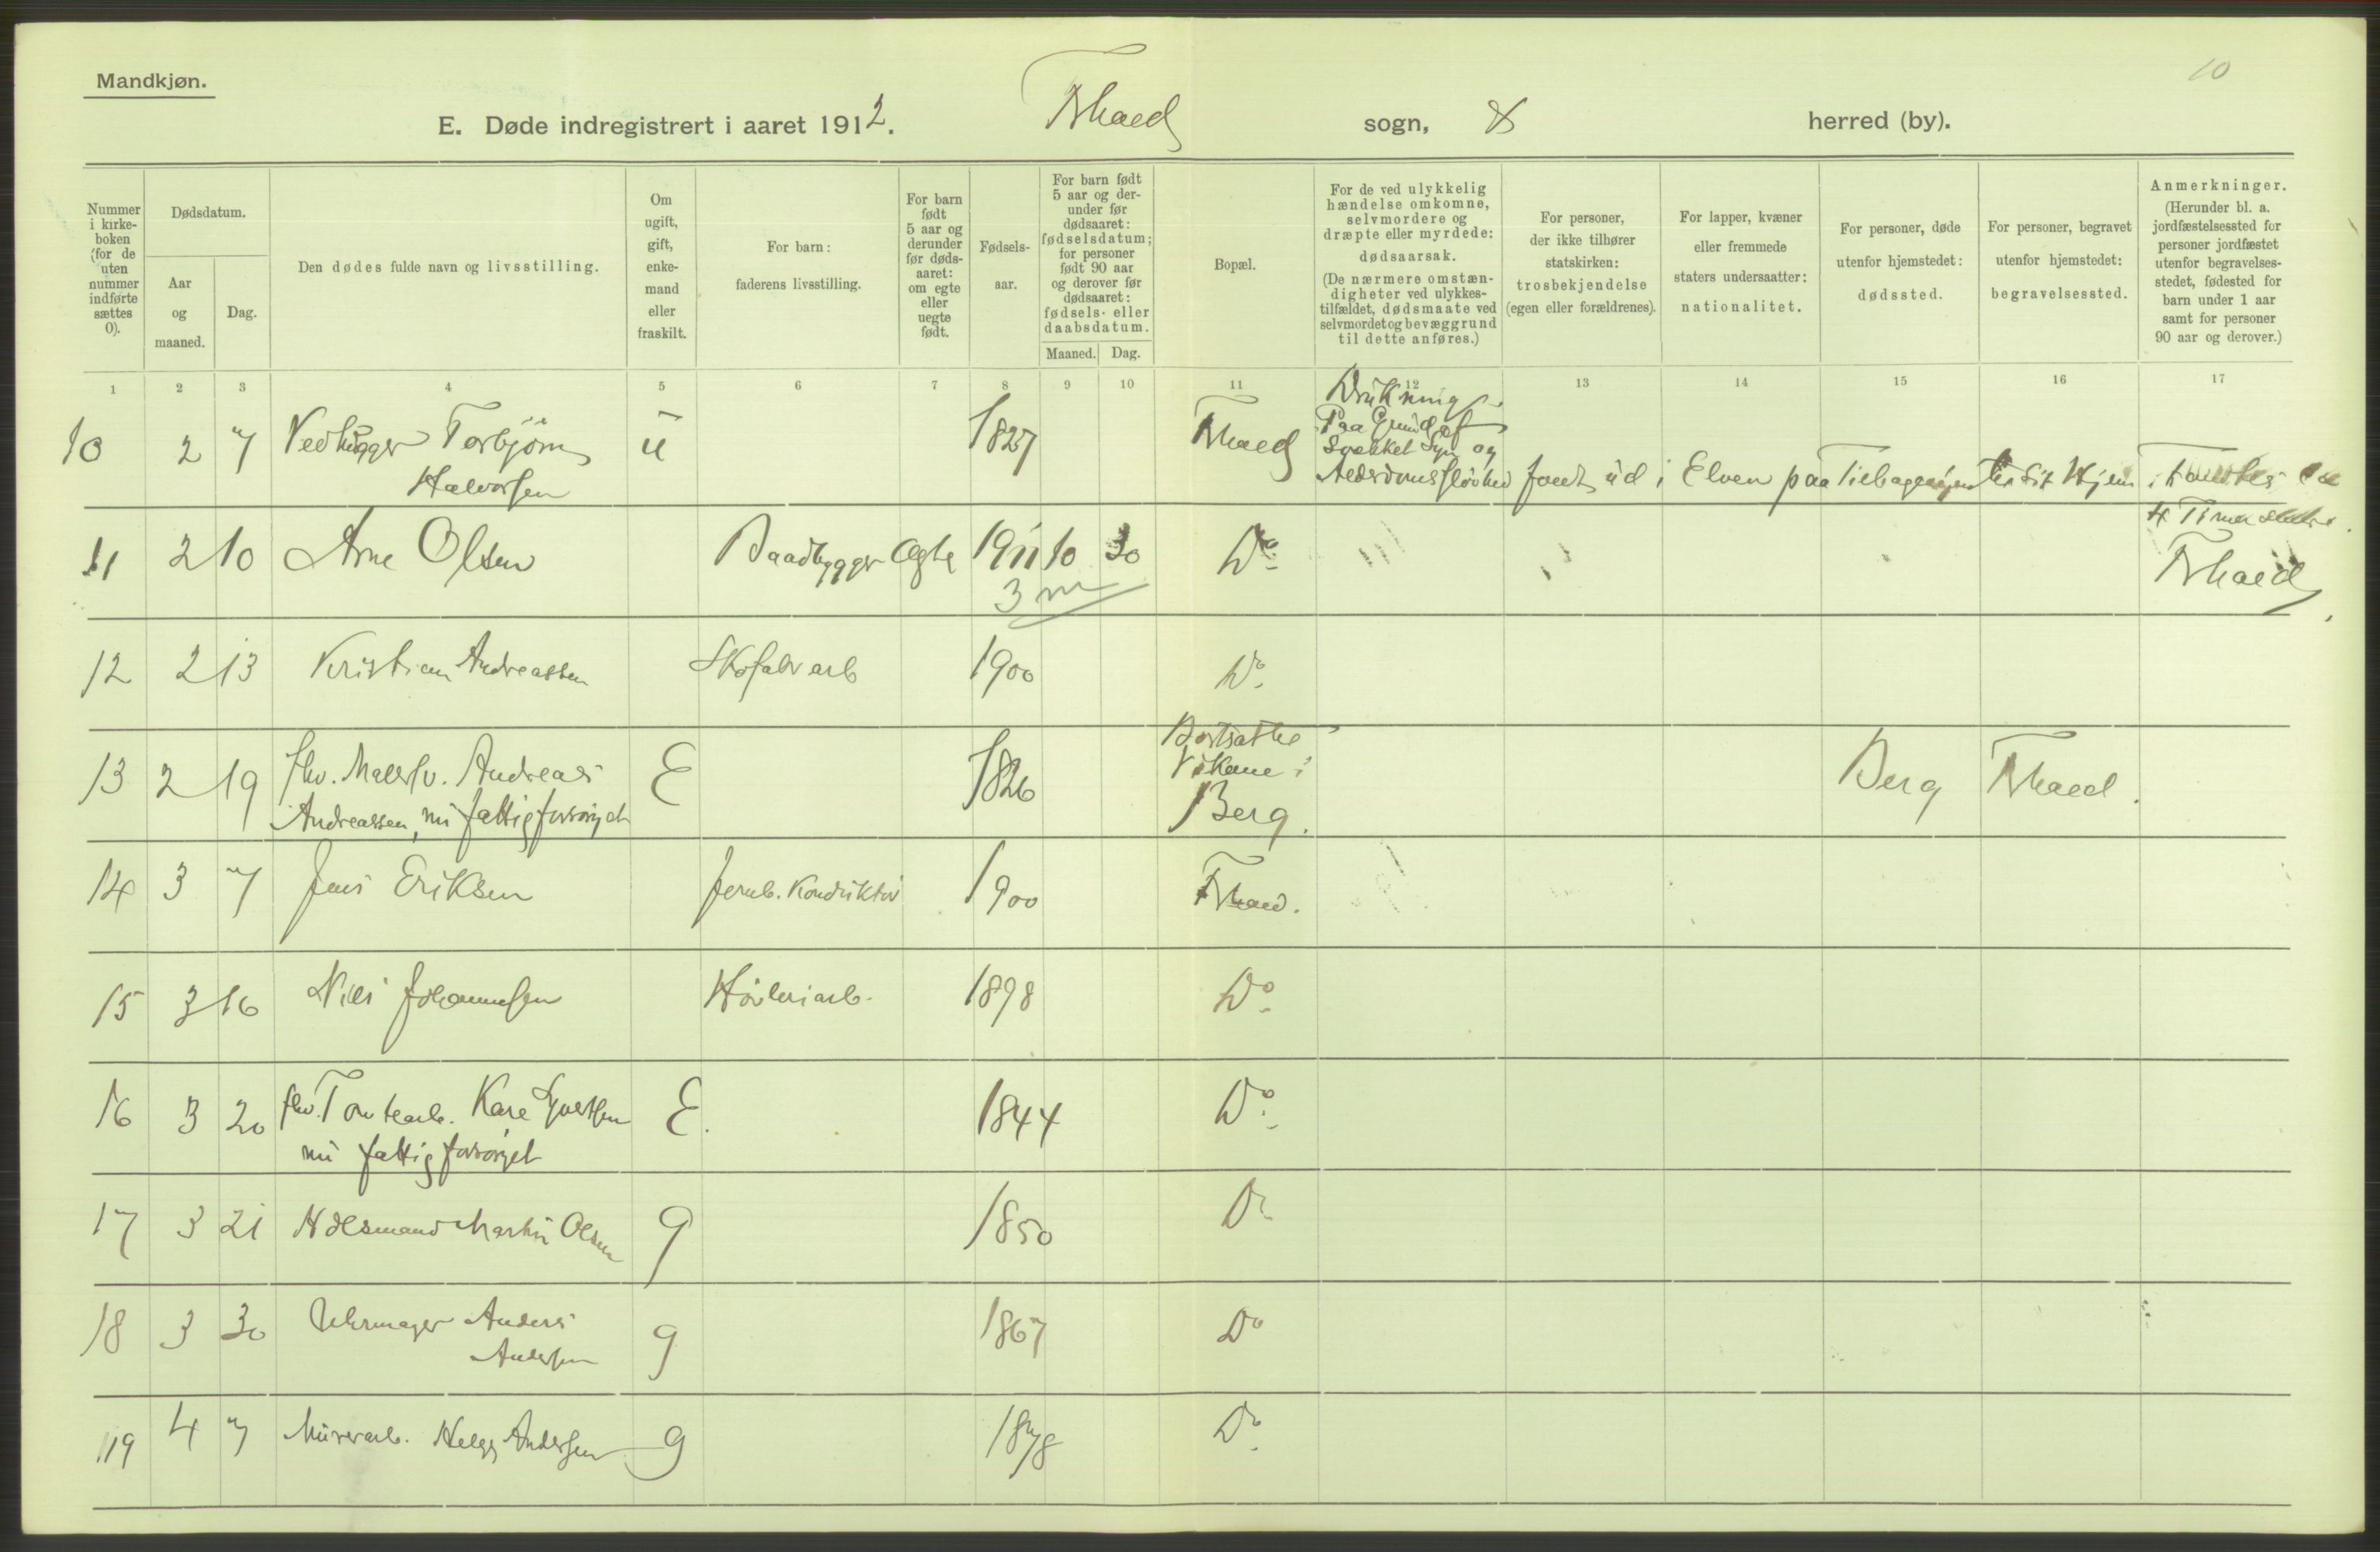 Mandkjøn.
10
E. Døde indregistrert i aaret 1912. Fhald sogn, & herred (by).
Nummer i kirke-boken (for de uten nummer indførte sættes 0).
Dødsdatum.
Aar og maaned.
Dag.
Den dødes fulde navn og livsstilling.
Om ugift, gift, enke-mand eller fraskilt.
For barn: faderens livsstilling.
For barn født 5 aar og derunder før døds-aaret: om egte eller uegte født.
Fødsels-aar.
For barn født 5 aar og der-under før dødsaaret: fødselsdatum; for personer født 90 aar og derover før dødsaaret: fødsels- eller daabsdatum.
Maaned. Dag.
Bopæl.
For de ved ulykkelig hændelse omkomne, selvmordere og dræpte eller myrdede: dødsaarsak. (De nærmere omstæn-digheter ved ulykkes-tilfældet, dødsmaate ved selvmordet og bevæggrund til dette anføres.)
For personer, der ikke tilhører statskirken: trosbekjendelse (egen eller forældrenes).
For lapper, kvæner eller fremmede staters undersaatter: nationalitet.
For personer, døde utenfor hjemstedet: dødssted.
For personer, begravet utenfor hjemstedet: begravelsessted.
Anmerkninger. (Herunder bl. a. jordfæstelsessted for personer jordfæstet utenfor begravelses-stedet, fødested for barn under 1 aar samt for personer 90 aar og derover.)
1 2 3 4 5 6 7 8 9 10 11 12 13 14 15 16 17
10 2 7 Vedhugger Torbjørn Halvorsen u 1827 Fhald Drukning. Paa Grund af svækket Syn og Alderdomssløvhed faldt ud i Elven paa Tilbageveien til sit Hjem
4 Timer
11 2 10 Arne Olsen Baadbygger Ægte 1911 10 30 Do Fhald
3 m
12 2 13 Kristian Andreassen Skofabr arb 1900 Do
13 2 19 fhv. Malersv. Andreas Andreassen, nu fattigforsørget E 1826 Bortsatte Vikene i Berg. Berg Fhald.
14 3 7 Jens Eriksen Jernb. Konduktør 1900 Fhald.
15 3 16 Nils Johannesen Høvleriarb. 1898 Do
16 3 20 fhv. Tomtearb. Kare Syvertsen nu fattigforsørget E. 1844 Do
17 3 21 Martin Olsen g 1850 Do
18 3 30 Uhrmager Anders Andersen g 1867 Do
19 4 7 Murerarb. Helge Andersen g 1878 Do